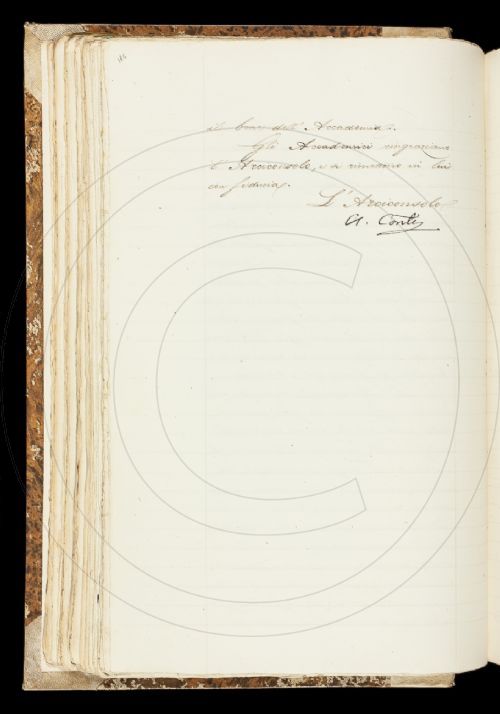 il bene dell' Accademia.
Gli Accademici ringraziano
l' Arciconsolo, e si rimettono in lui
con fiducia.
L' Arciconsolo
A. Conti